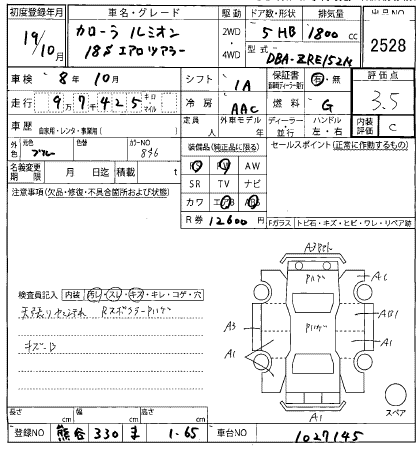 初度登録年月 車名・グレード 駆動 ドア数・形状 排気量 出品NO
19/10月 カローラ ルミオン 2WD・4WD 5 HB 1800 cc 2528
18S エアロツアラー 型式 DBA-ZRE152N
車検 8年 10月 シフト IA 保証書 有・無 評価点
走行 9万7千425 キロ・マイル 冷房 AAC 燃料 G 3.5
車歴 自家用・レンタ・事業用( ) 定員 人 外車モデル ディーラー・並行 ハンドル 左・右 内装評価 C
外色 元色 ブルー 色替 カラーNO 8N6
装備品(純正品に限る) セールスポイント(正常に作動するもの)
名義変更期限 月 日迄 積載 t
PS PW AW
SR TV ナビ
カワ エアB ABS
R券 12600円
注意事項(欠品・修復・不具合箇所および状態)
Fガラス トビ石・キズ・ヒビ・ワレ・リペア跡
A3
Pハゲ
A1
A3
Pハゲ
A1
A1
A1
スペア
検査員記入 内装 汚レ・スレ・キズ・キレ・コゲ・穴
天張りセンヨゴレ RスポイラーPハゲ
キズ
長さ cm 幅 cm 高さ cm
登録NO 熊谷 330 ま 1-65 車台NO 1027145